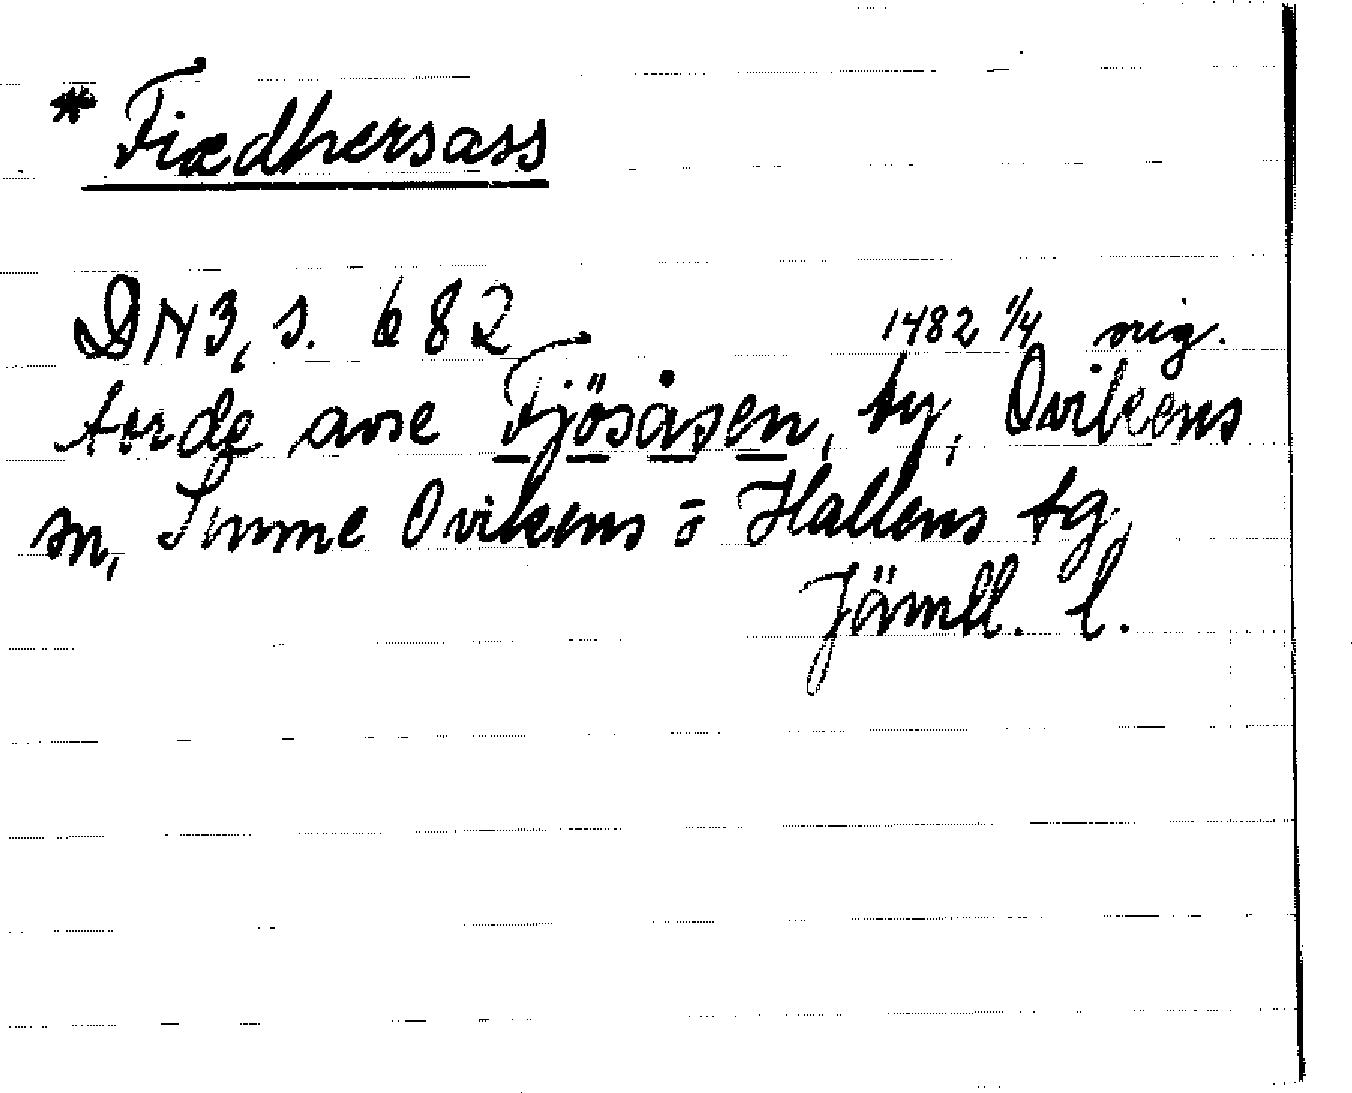 * Fiædhersass
DN3, s. 682 1482 1/4 sig.
torde avse Fjösåsen, by, Ovikens
sn, Sunne Ovikens o Hallens tg,
Jämtl. l.